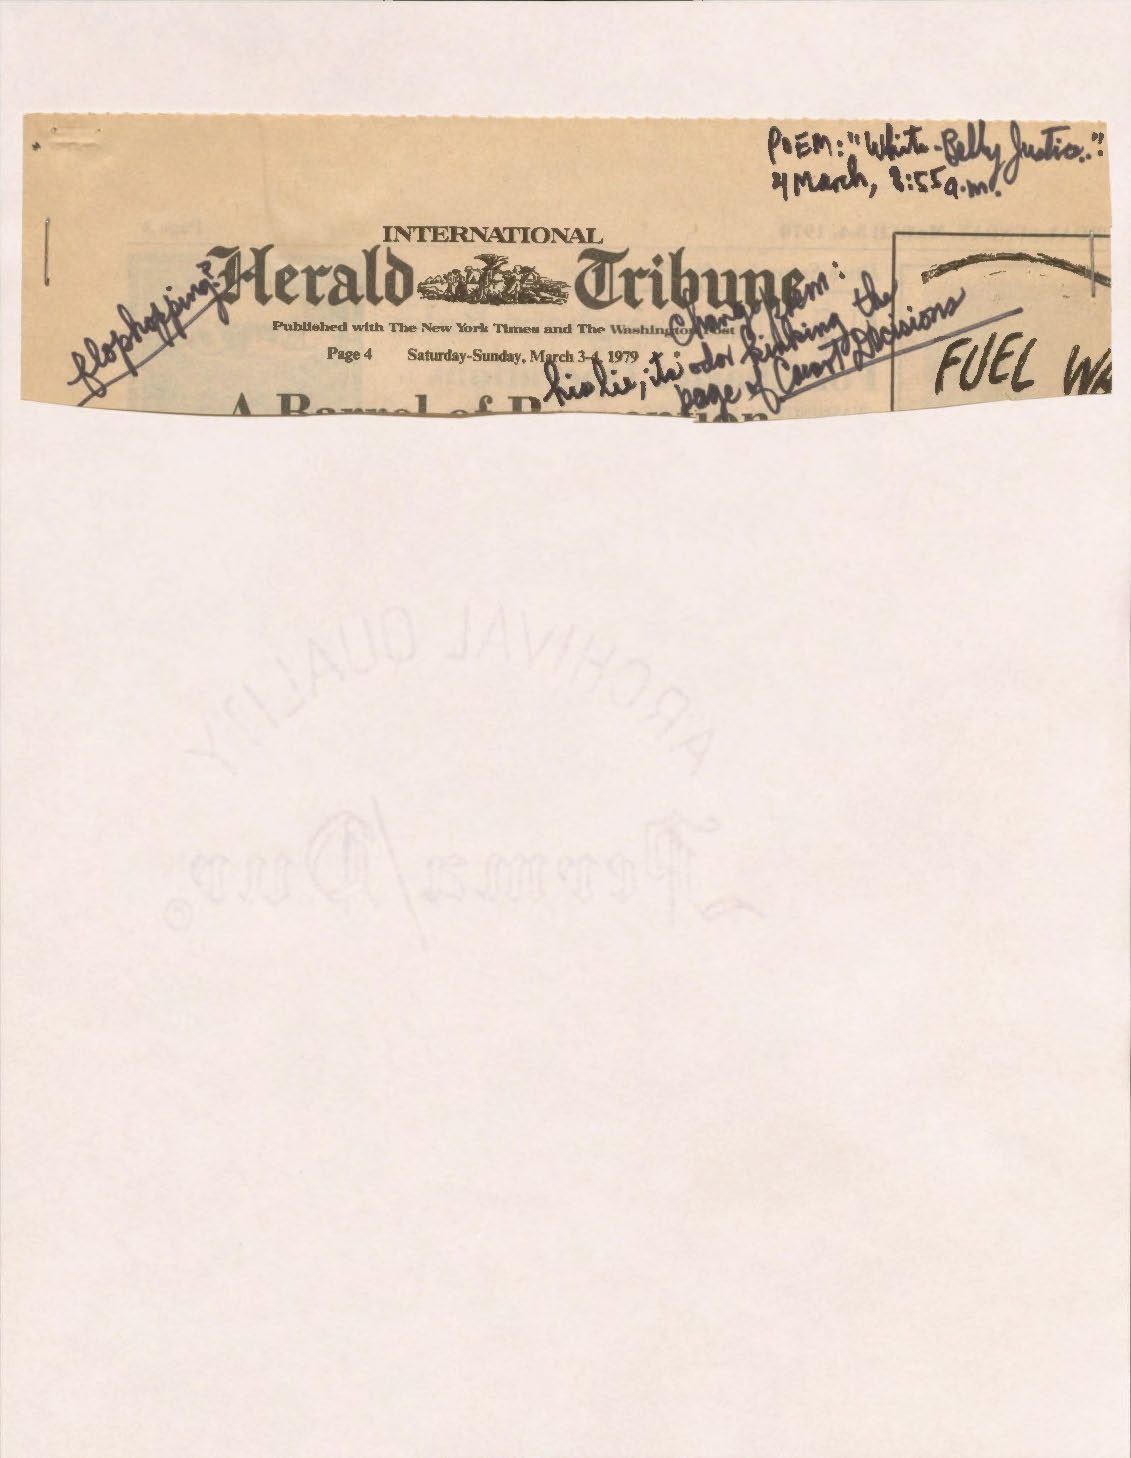 POEM: "White-Belly Justice."
4 March, 8:55 a.m.
INTERNATIONAL
Herald Tribune
Published with The New York Times and The Washington Post
Page 4 Saturday-Sunday, March 3-4, 1979
flophopping?
Change poem:
his lie, its odor kinking the
page of Court Decisions
FUEL WA
A Barrel of
ARCHIVAL QUALITY
Perma/Dur ©